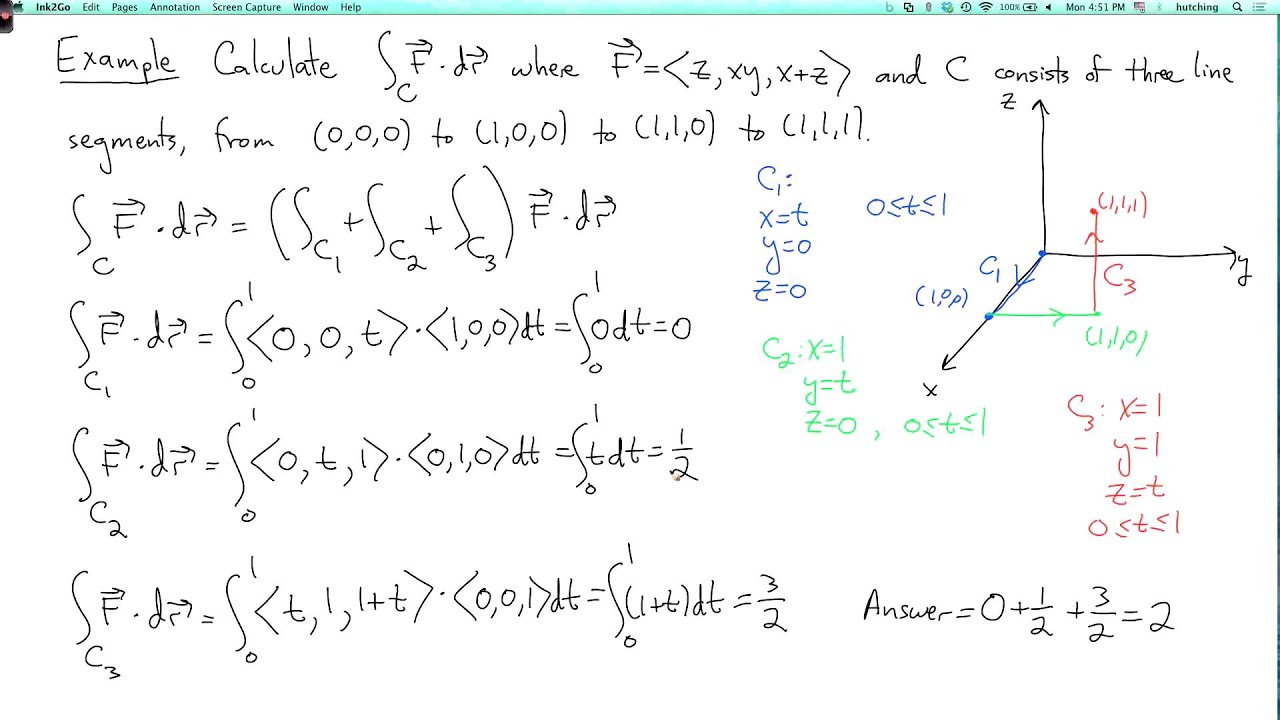 Ink2Go Edit Pages Annotation Screen Capture Window Help 100% Mon 4:51 PM hutching
Example Calculate ∫_C F⃗ · dr⃗ where F⃗ = ⟨z, xy, x+z⟩ and C consists of three line
segments, from (0,0,0) to (1,0,0) to (1,1,0) to (1,1,1).
∫_C F⃗ · dr⃗ = (∫_C₁ + ∫_C₂ + ∫_C₃) F⃗ · dr⃗
∫_C₁ F⃗ · dr⃗ = ∫₀¹ ⟨0, 0, t⟩ · ⟨1,0,0⟩dt = ∫₀¹ 0dt = 0
∫_C₂ F⃗ · dr⃗ = ∫₀¹ ⟨0, t, 1⟩ · ⟨0,1,0⟩dt = ∫₀¹ t dt = 1/2
∫_C₃ F⃗ · dr⃗ = ∫₀¹ ⟨t, 1, 1+t⟩ · ⟨0,0,1⟩dt = ∫₀¹ (1+t)dt = 3/2
C₁:
x=t 0≤t≤1
y=0
z=0
C₂: x=1
y=t
z=0, 0≤t≤1
z
(1,1,1)
y
C₁
C₃
(1,0,0)
(1,1,0)
x
C₃: x=1
y=1
z=t
0≤t≤1
Answer = 0 + 1/2 + 3/2 = 2